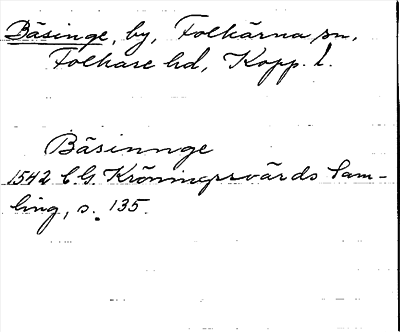 Bäsinge, by, Folkärna sn,
Folkare hd, Kopp. l.
Bäsinnge
1542 C.G. Kröningsvärds Sam-
ling, s. 135.